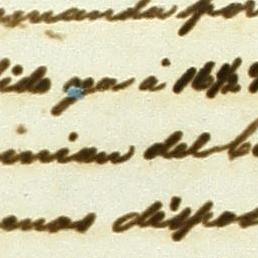 manda por
ido ya á 16½
inion del
enos dispos